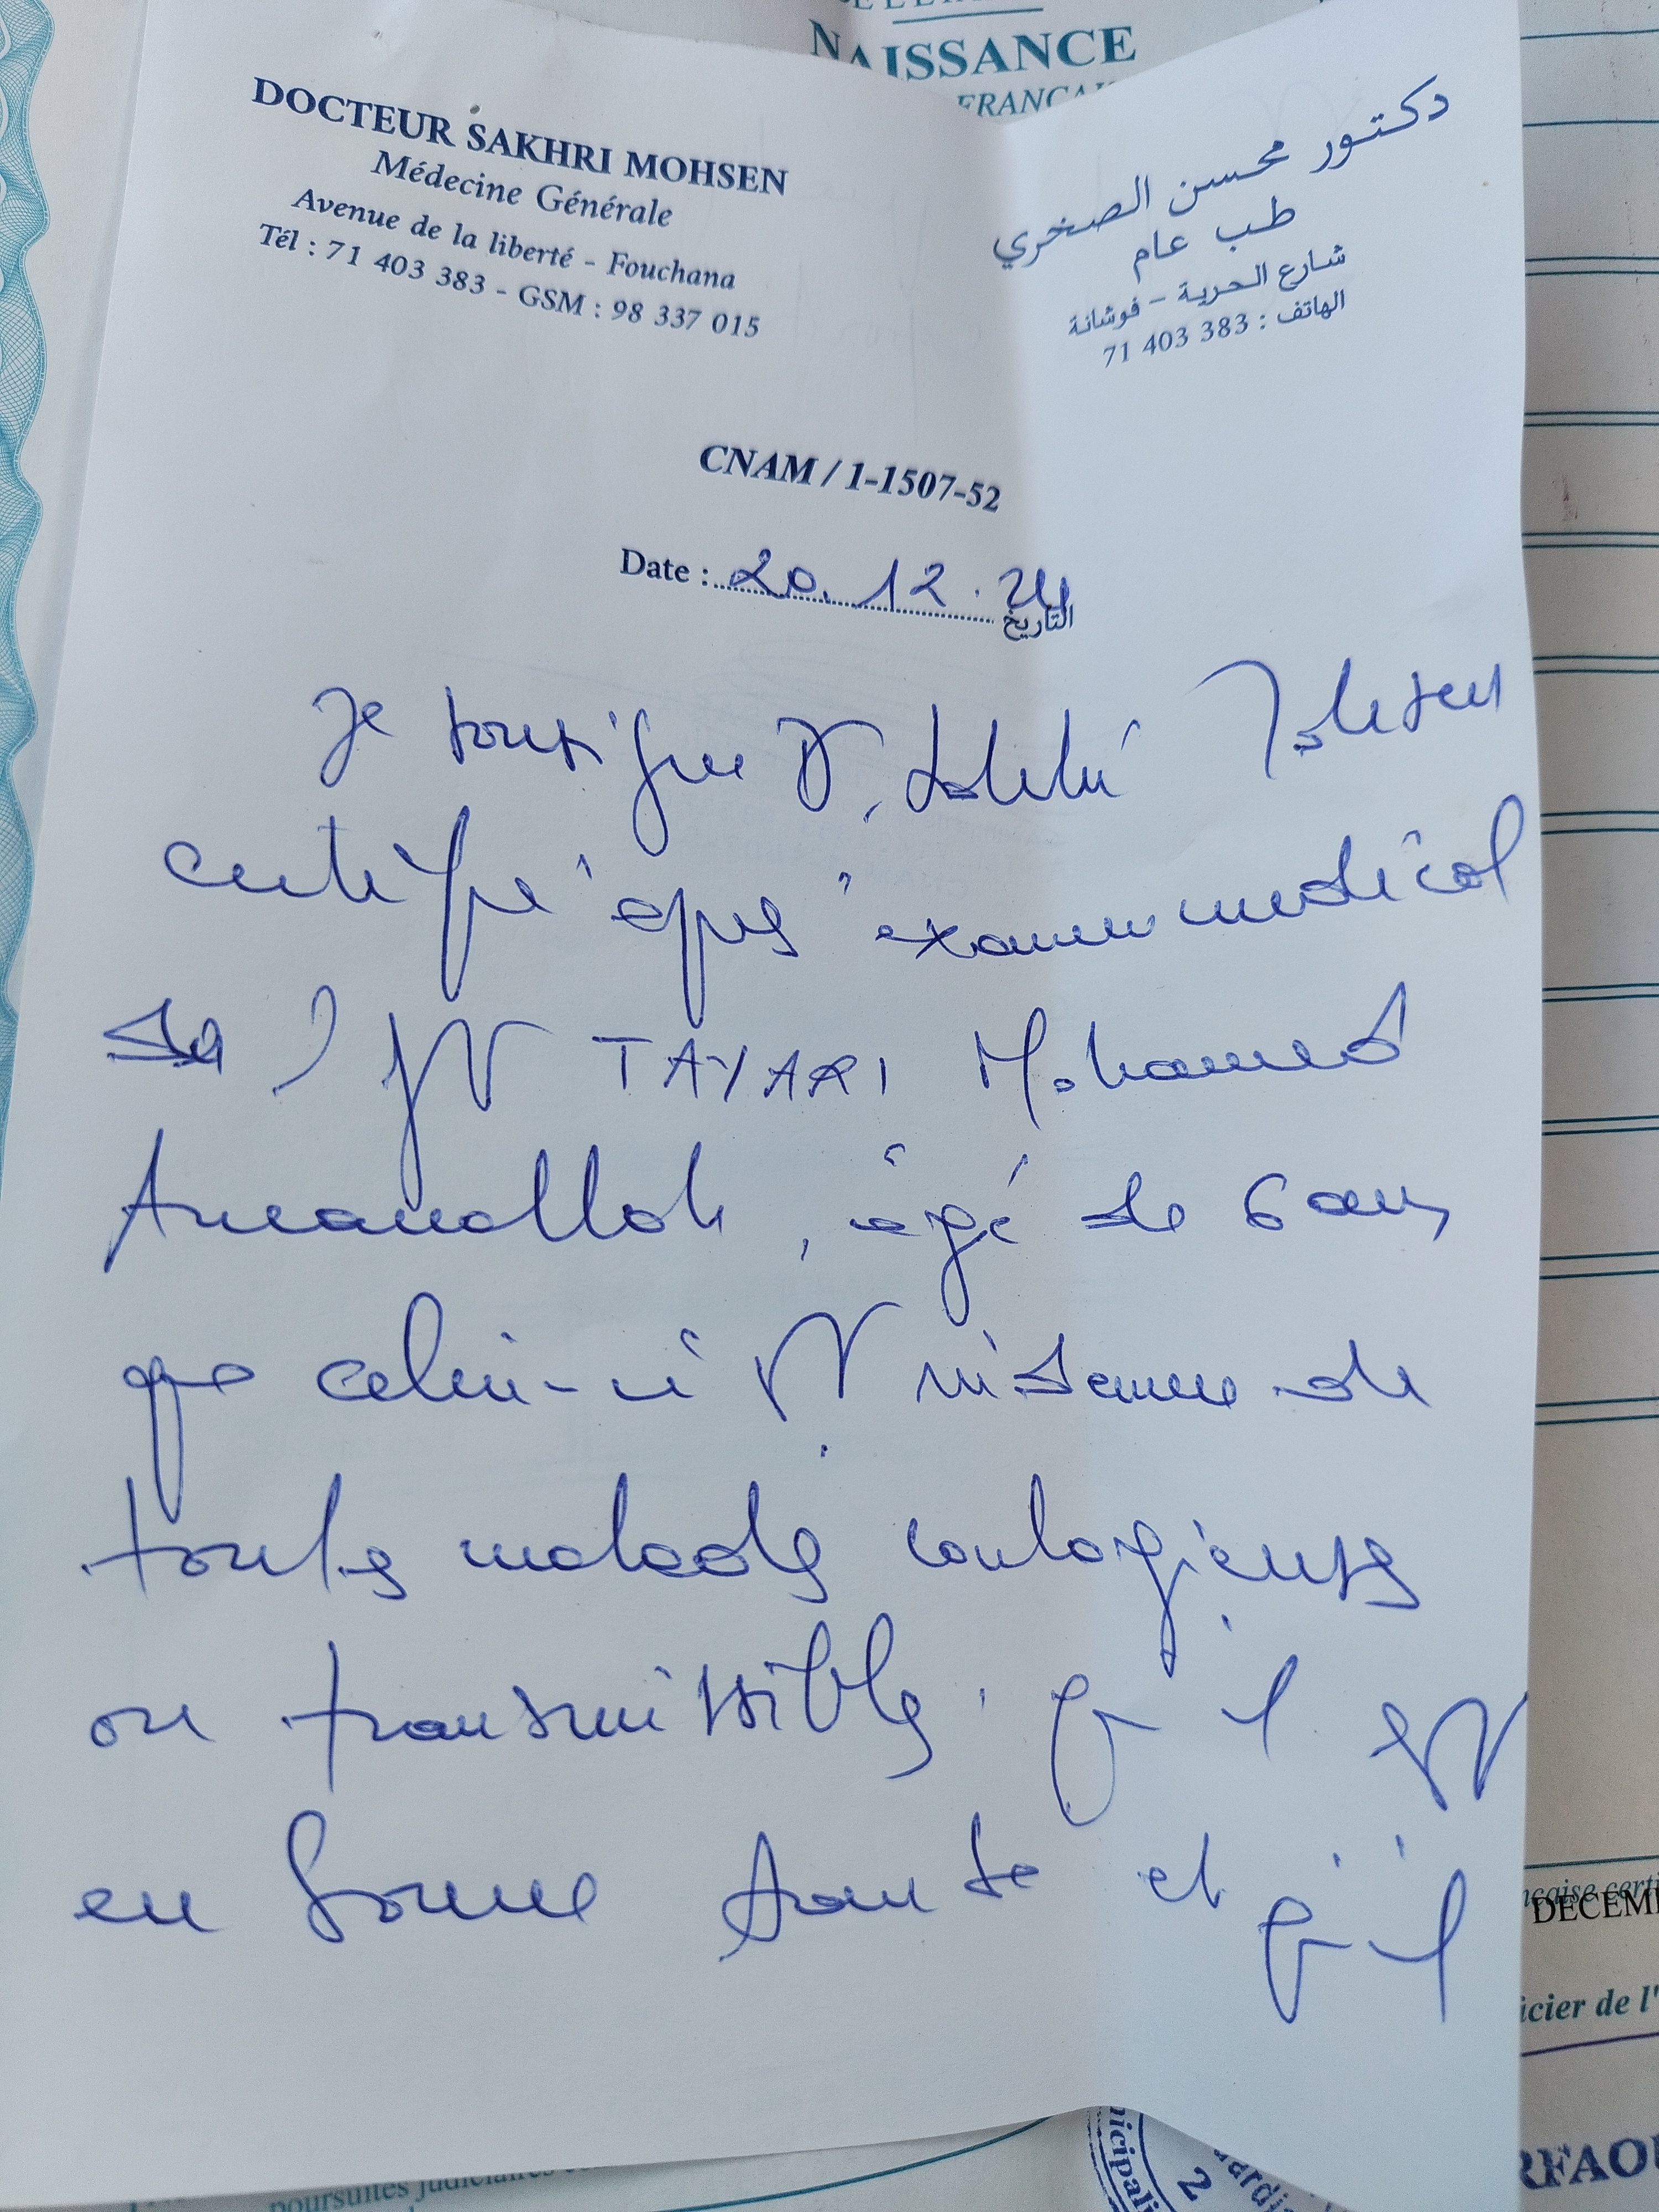 NAISSANCE
FRANÇAI
DOCTEUR SAKHRI MOHSEN
Médecine Générale
Avenue de la liberté - Fouchana
Tél : 71 403 383 - GSM : 98 337 015
دكتور محسن الصخري
طب عام
شارع الحرية - فوشانة
الهاتف : 383 403 71
CNAM / 1-1507-52
Date : 20. 12. 24 التاريخ
Je soussigné Dr. Sakhri Mohsen
certifie après examen médical
de TAYARI Mohamed
Amanallah, âgé de 6 ans
que celui-ci est indemne de
toutes maladies contagieuses
ou transmissibles. qu'il est
en bonne santé et qu'il
nçaise certi
DECEM
icier de l'
RFAOU
nicipali
2
poursuites judiciaires